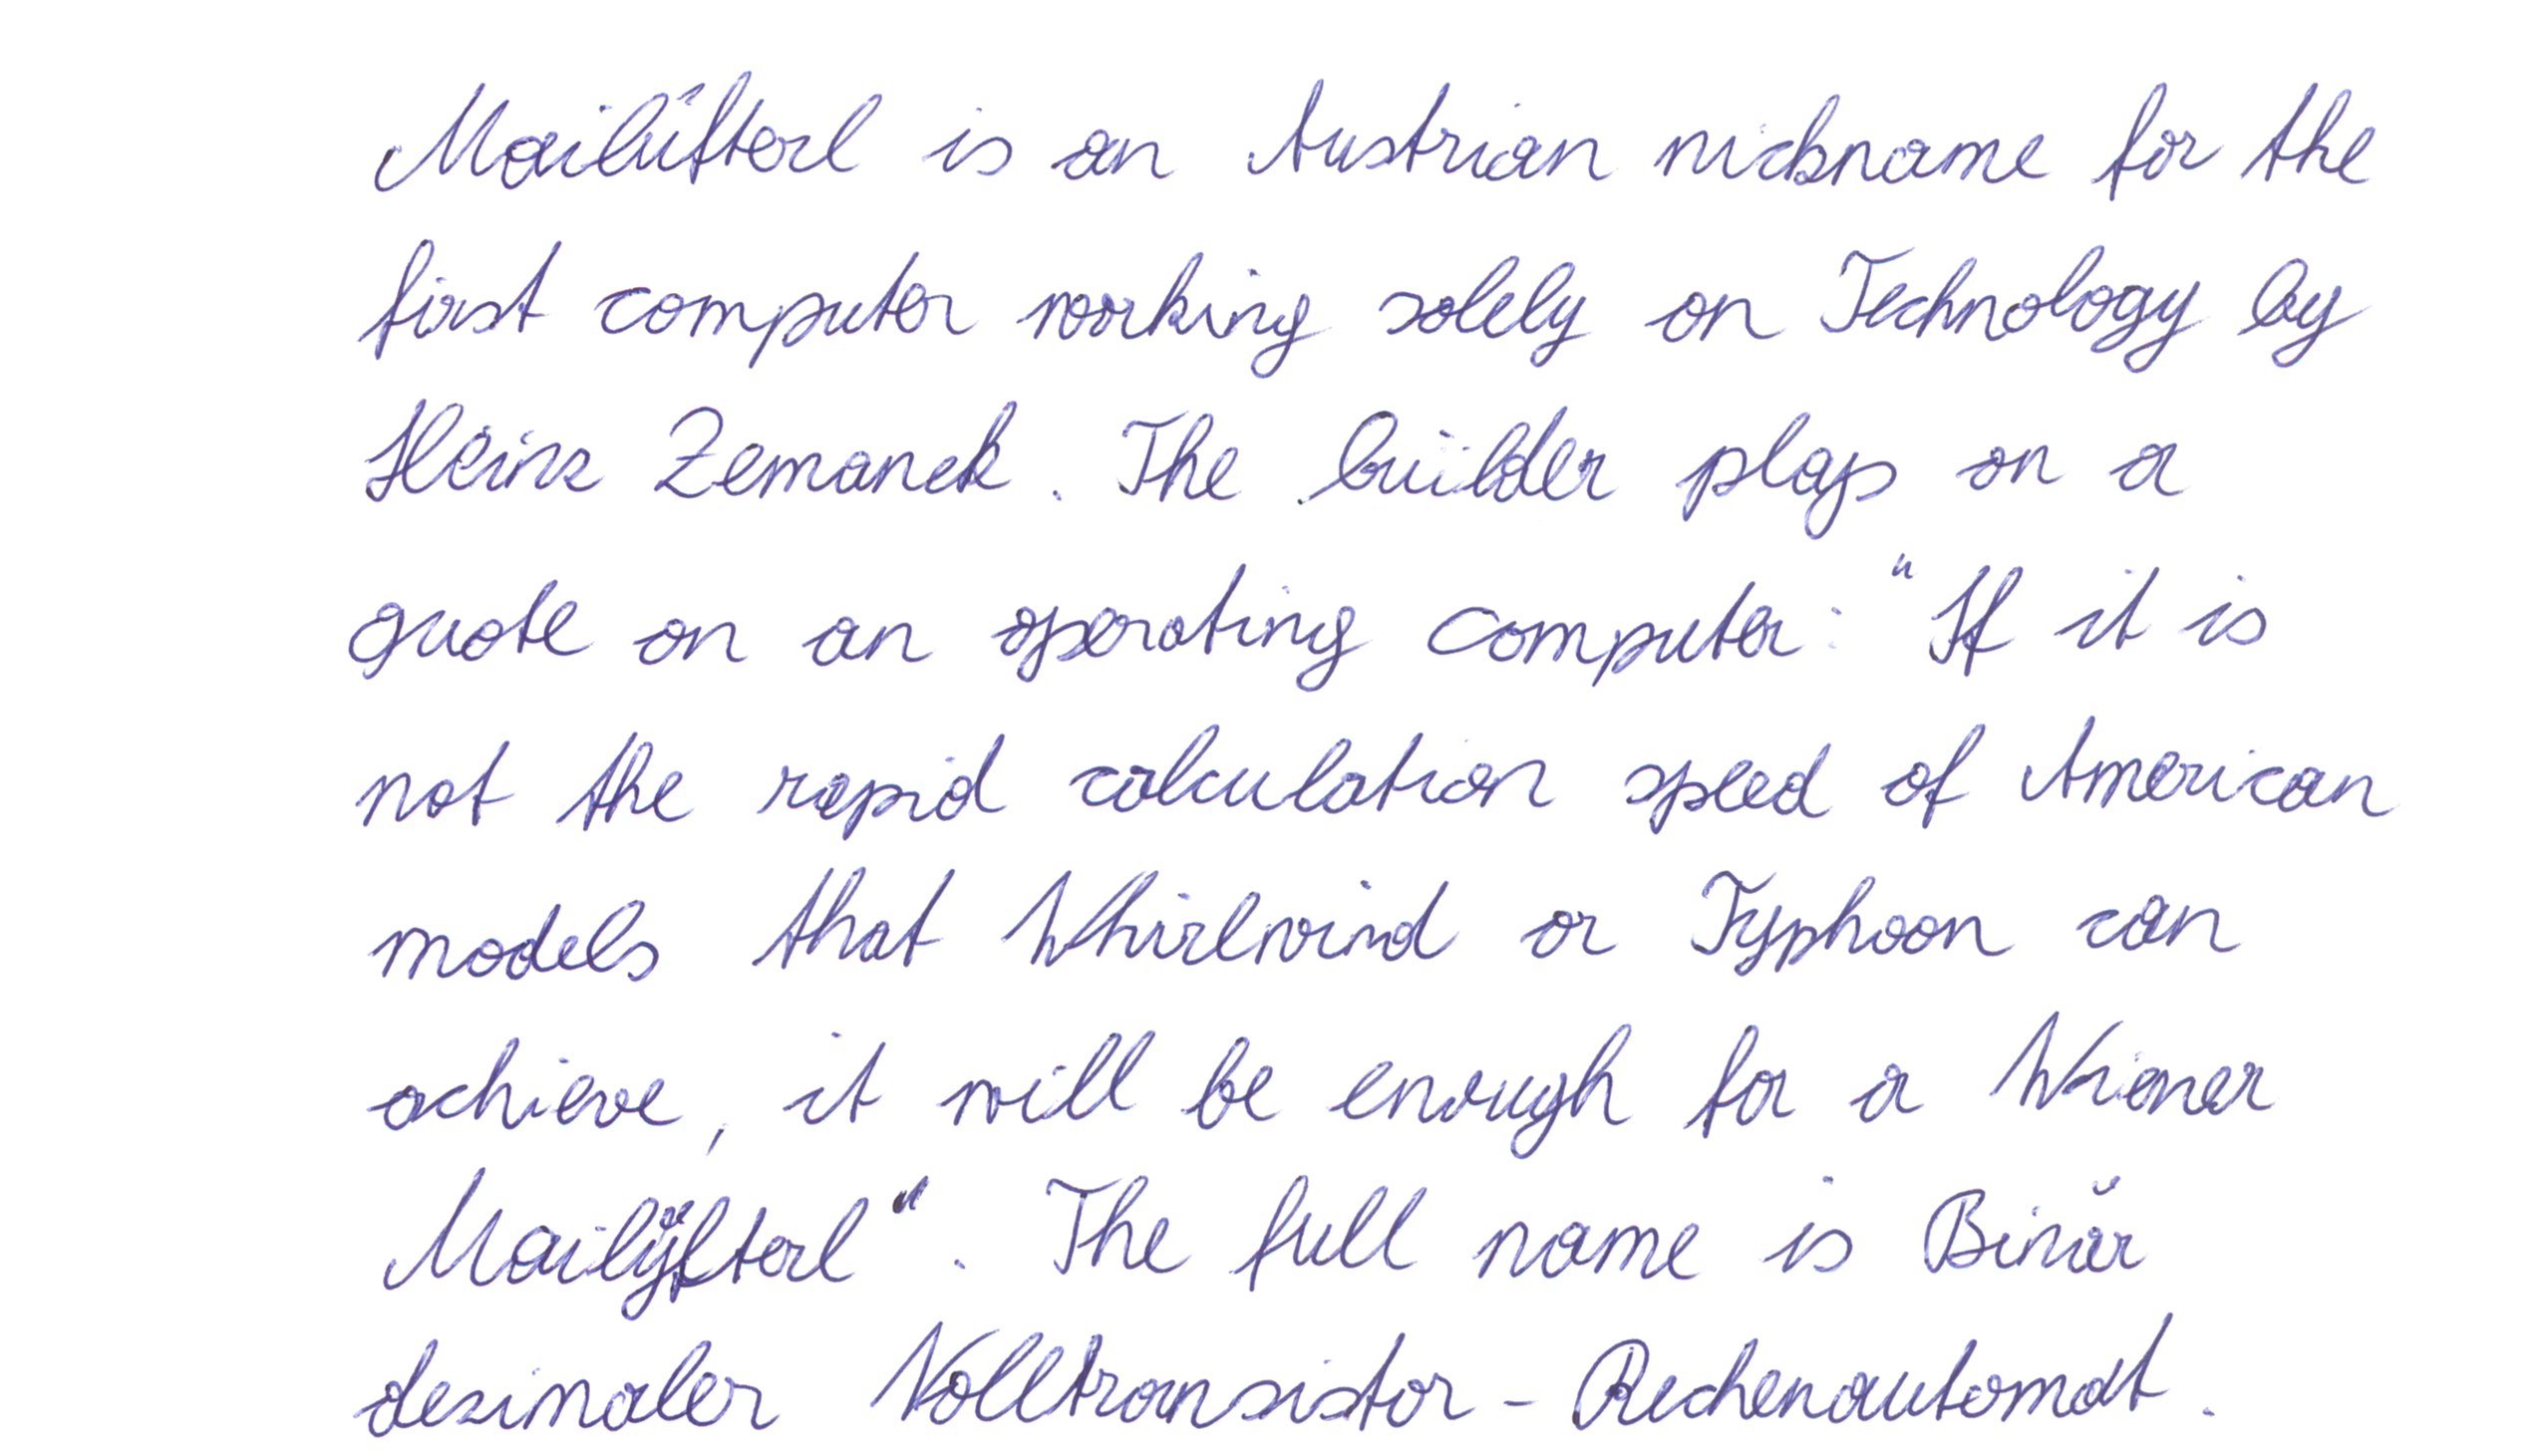 Mailüfterl is an Austrian nickname for the
first computer working solely on Technology by
Heinz Zemanek. The builder plays on a
quote on an operating computer: "If it is
not the rapid calculation speed of American
models that Whirlwind or Typhoon can
achieve, it will be enough for a Wiener
Mailüfterl". The full name is Binär
dezimaler Volltransistor-Rechenautomat.